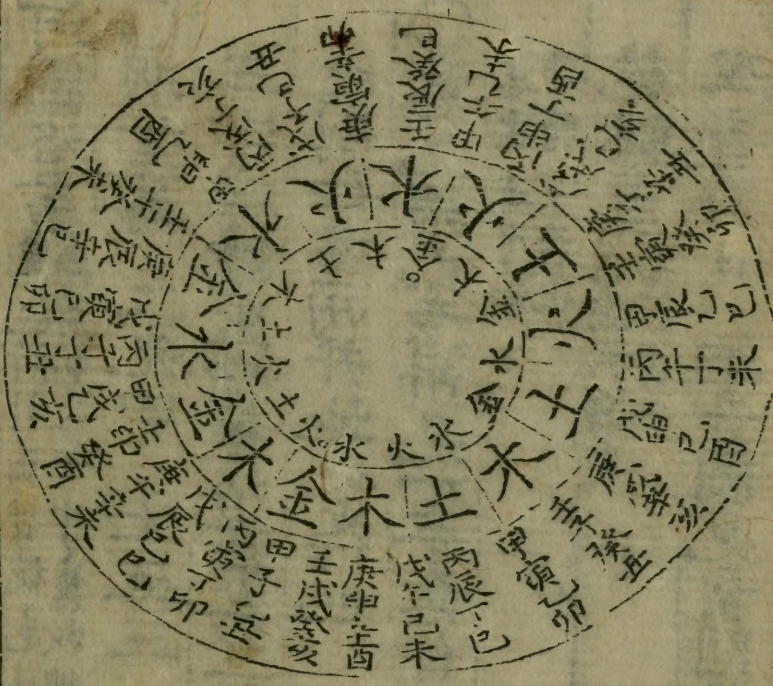 甲子乙丑
丙寅丁卯
戊辰己巳
庚午辛未
壬申癸酉
甲戌乙亥
丙子丁丑
戊寅己卯
庚辰辛巳
壬午癸未
甲申乙酉
丙戌丁亥
戊子己丑
庚寅辛卯
壬辰癸巳
甲午乙未
丙申丁酉
戊戌己亥
庚子辛丑
壬寅癸卯
甲辰乙巳
丙午丁未
戊申己酉
庚戌辛亥
壬子癸丑
甲寅乙卯
丙辰丁巳
戊午己未
庚申辛酉
壬戌癸亥
金
木
金
水
金
水
火
木
火
土
火
土
木
土
木
火
土
火
土
木
土
木
金
木
金
水
金
水
火
水